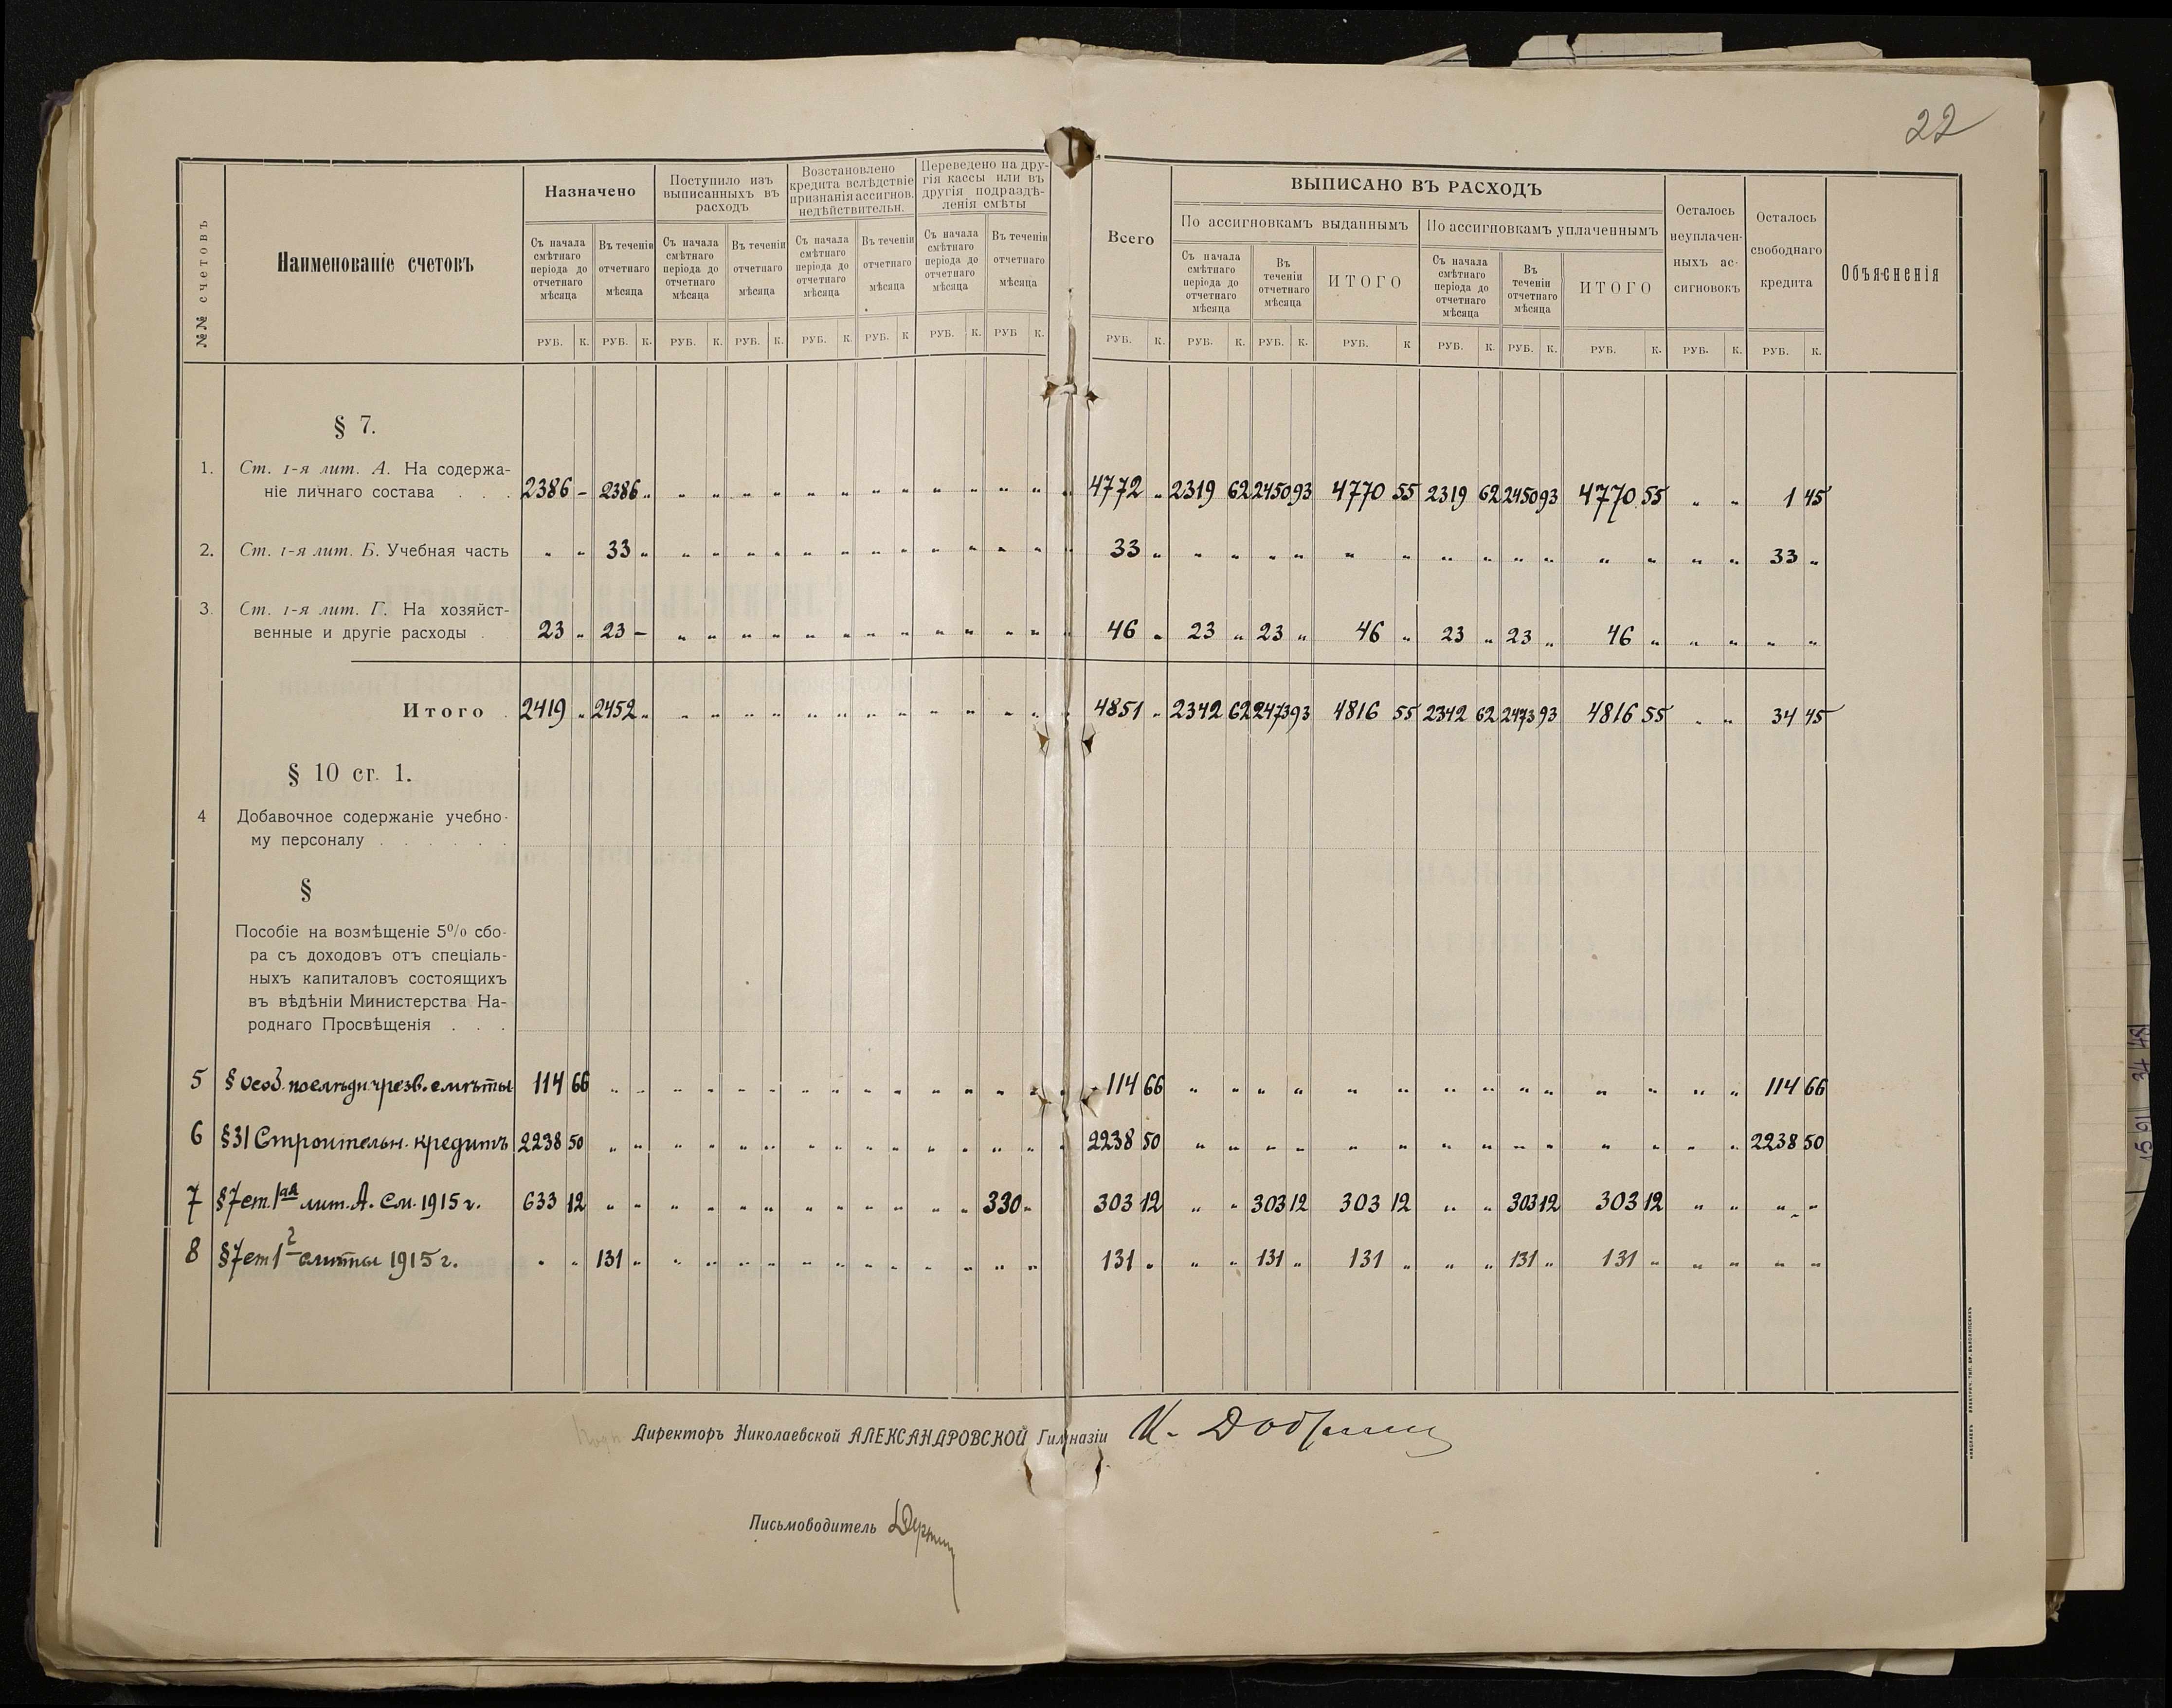 22
№№ счетовъ
Наименованіе счетовъ
Назначено
Поступило изъ
выписанныхъ въ
расходъ
Возстановлено
кредита вслѣдствіе
признанія ассигнов.
недѣйствительн.
Переведено на дру-
гія кассы или въ
другія подраздѣ-
ленія смѣты
Всего
ВЫПИСАНО ВЪ РАСХОДЪ
По ассигновкамъ выданнымъ
По ассигновкамъ уплаченнымъ
Осталось
неуплачен-
ныхъ ас-
сигновокъ
Осталось
свободнаго
кредита
Объясненія
Съ начала
смѣтнаго
періода до
отчетнаго
мѣсяца
Въ теченіи
отчетнаго
мѣсяца
Съ начала
смѣтнаго
періода до
отчетнаго
мѣсяца
Въ теченіи
отчетнаго
мѣсяца
Съ начала
смѣтнаго
періода до
отчетнаго
мѣсяца
Въ теченіи
отчетнаго
мѣсяца
Съ начала
смѣтнаго
періода до
отчетнаго
мѣсяца
Въ теченіи
отчетнаго
мѣсяца
Съ начала
смѣтнаго
періода до
отчетнаго
мѣсяца
Въ
теченіи
отчетнаго
мѣсяца
ИТОГО
Съ начала
смѣтнаго
періода до
отчетнаго
мѣсяца
Въ
теченіи
отчетнаго
мѣсяца
ИТОГО
РУБ. К. РУБ. К. РУБ. К. РУБ. К. РУБ. К. РУБ. К РУБ. К. РУБ К. РУБ. К. РУБ. К. РУБ. К. РУБ. К РУБ. К. РУБ. К. РУБ. К. РУБ. К. РУБ. К.
§ 7.
1. Ст. 1-я лит. А. На содержа-
ніе личнаго состава . . . 2386 – 2386 „ „ „ „ „ „ „ „ „ „ „ „ „ 4772 „ 2319 62 2450 93 4770 55 2319 62 2450 93 4770 55 „ „ 1 45
2. Ст. 1-я лит. Б. Учебная часть „ „ 33 „ „ „ „ „ „ „ „ „ „ „ „ „ 33 „ „ „ „ „ „ „ „ „ „ „ „ „ „ „ 33 „
3. Ст. 1-я лит. Г. На хозяйст-
венные и другіе расходы . 23 „ 23 – „ „ „ „ „ „ „ „ „ „ „ „ 46 „ 23 „ 23 „ 46 „ 23 „ 23 „ 46 „ „ „ „ „
Итого . 2419 „ 2452 „ „ „ „ „ „ „ „ „ „ „ „ „ 4851 „ 2342 62 2473 93 4816 55 2342 62 2473 93 4816 55 „ „ 34 45
§ 10 ст. 1.
4 Добавочное содержаніе учебно-
му персоналу . . . . . .
§
Пособіе на возмѣщеніе 5% сбо-
ра съ доходовъ отъ спеціаль-
ныхъ капиталовъ состоящихъ
въ вѣдѣніи Министерства На-
роднаго Просвѣщенія . . .
5 § особ. послѣдн. чрезв. смѣты 114 66 „ „ „ „ „ „ „ „ „ „ „ „ „ „ 114 66 „ „ „ „ „ „ „ „ „ „ „ „ „ „ 114 66
6 §31 Строительн. кредитъ 2238 50 „ „ „ „ „ „ „ „ „ „ „ „ „ „ 2238 50 „ „ „ „ „ „ „ „ „ „ „ „ „ „ 2238 50
7 §7 ст. 1ая лит. А. см. 1915 г. 633 12 „ „ „ „ „ „ „ „ „ „ „ „ 330 „ 303 12 „ „ 303 12 303 12 „ „ 303 12 303 12 „ „ „ „
8 §7 ст 1 г смѣты 1915 г. „ „ 131 „ „ „ „ „ „ „ „ „ „ „ „ „ 131 „ „ „ 131 „ 131 „ „ „ 131 „ 131 „ „ „ „ „
Директоръ Николаевской АЛЕКСАНДРОВСКОЙ Гимназіи
Письмоводитель